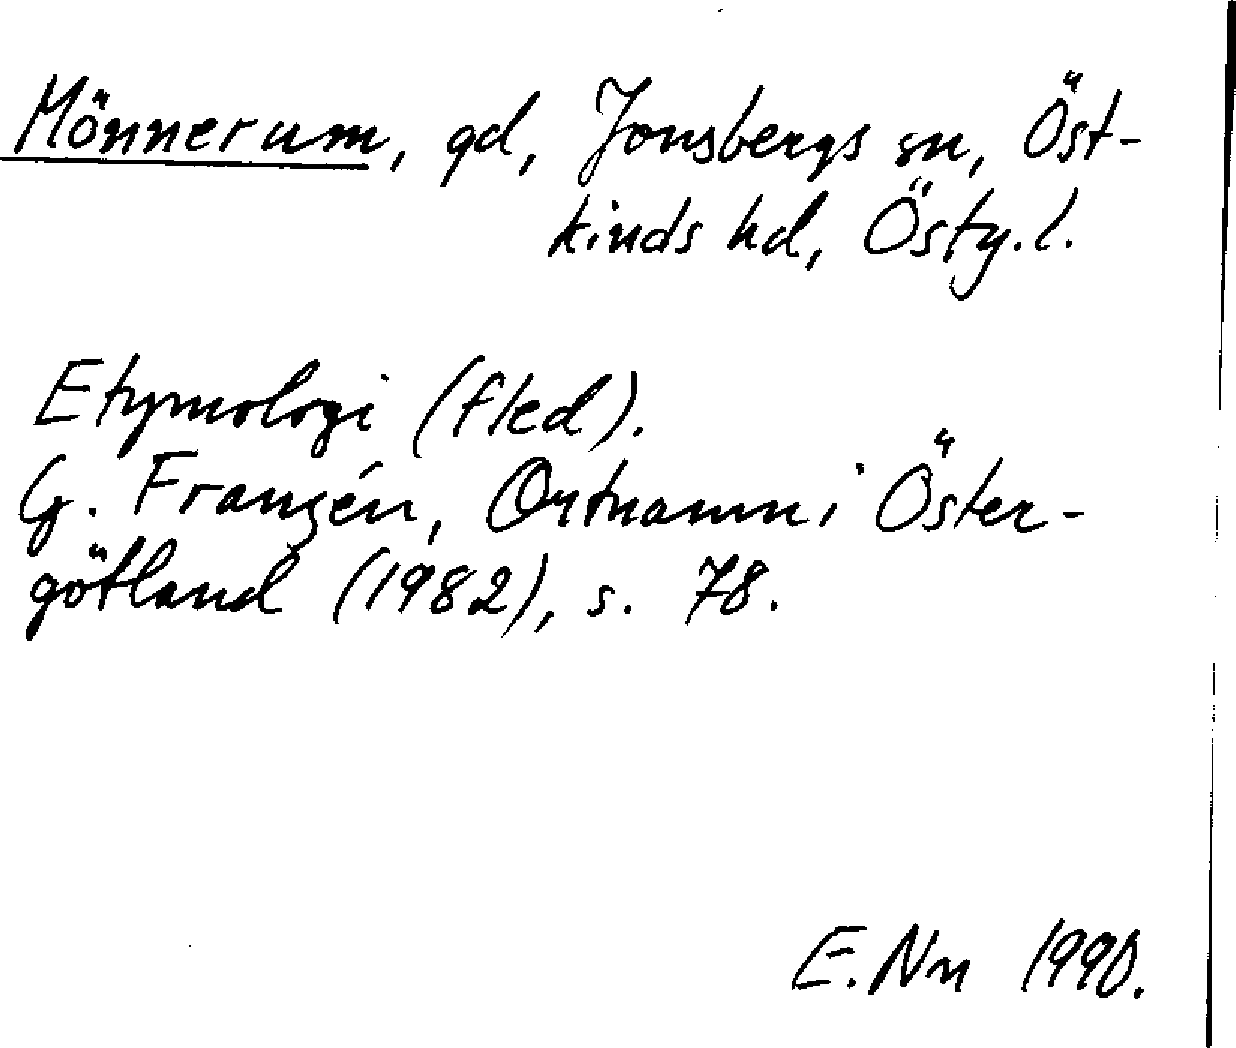 Mönnerum, gd, Jonsbergs sn, Öst-
kinds hd, Östg.l.
Etymologi (fled).
G. Franzén, Ortnamn i Öster-
götland (1982), s. 78.
E.Nn 1990.